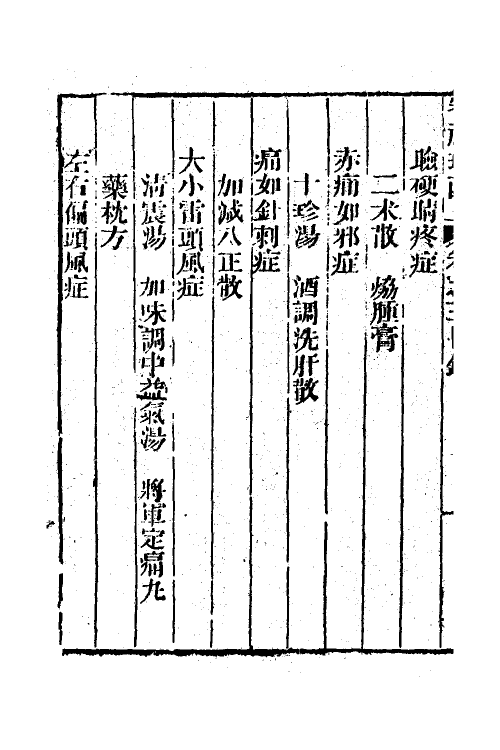 瞼硬睛疼症
二朮散　熁腫膏
赤痛如邪症
十珍湯　酒調洗肝散
痛如針刺症
加減八正散
大小雷頭風症
清震湯　加味調中益氣湯　將軍定痛丸
藥枕方
左右偏頭風症